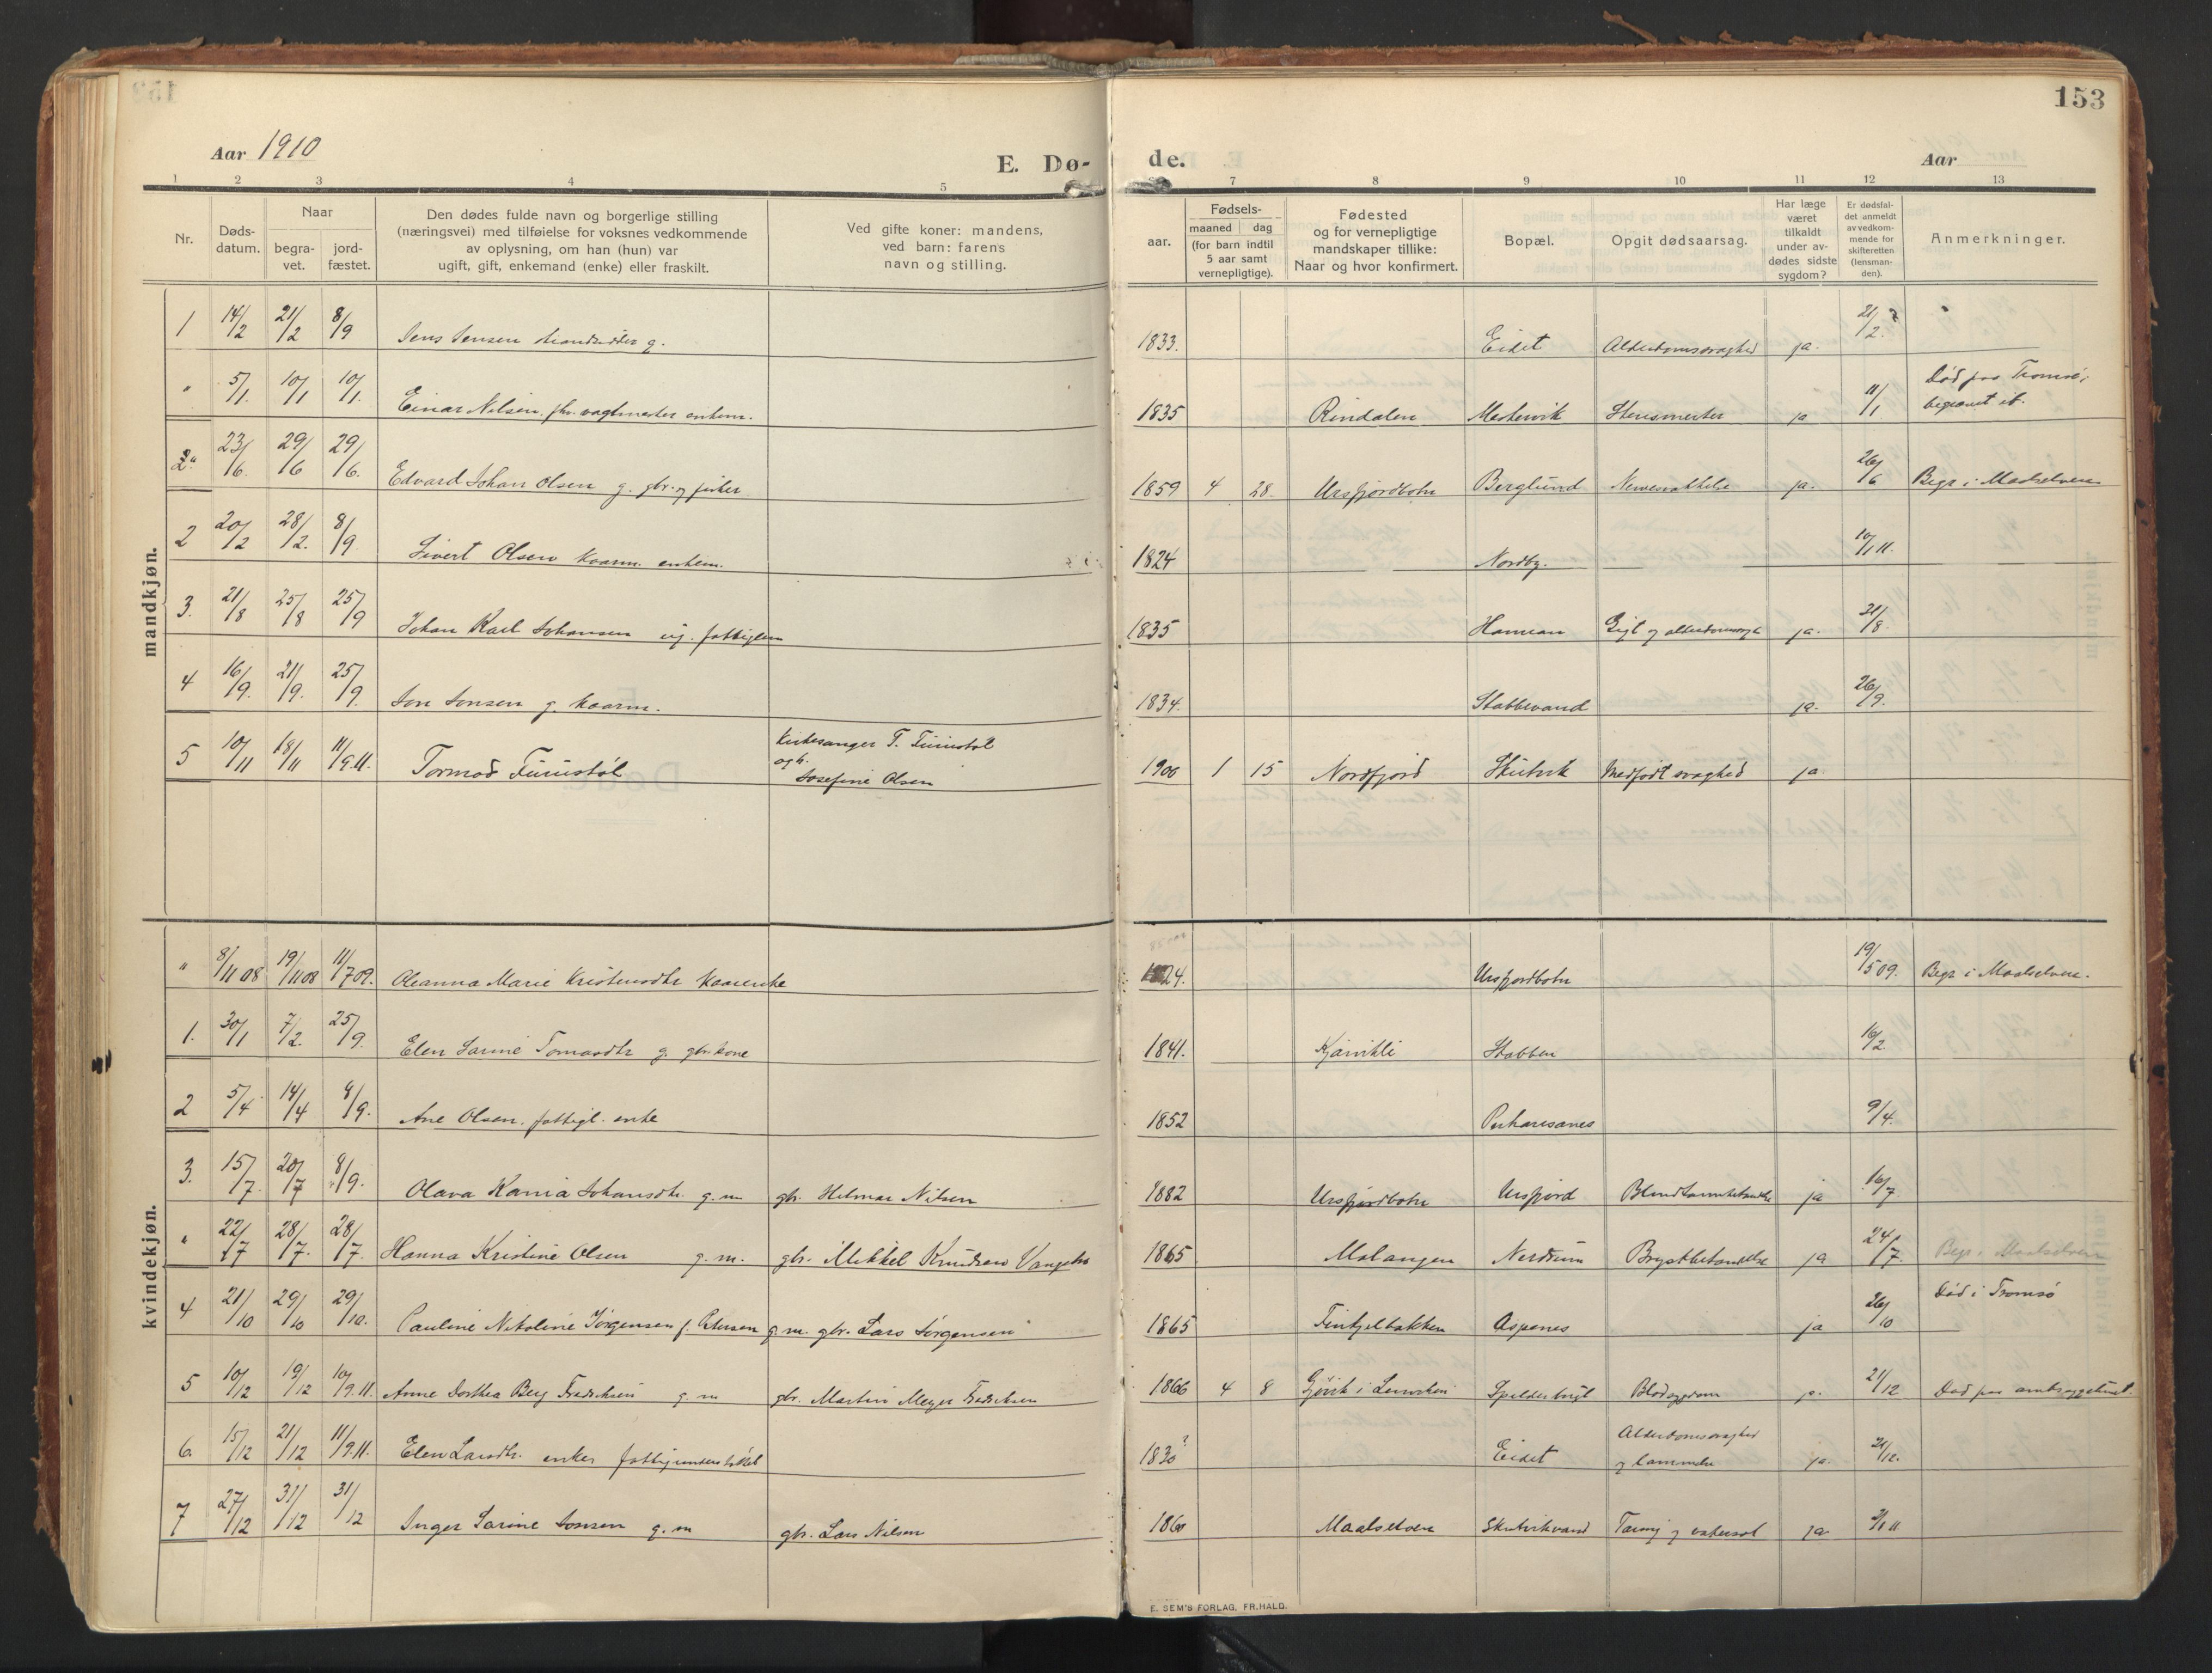 153
Aar 1910
E. Dø-
de.
Aar
1 2 3 4 5 7 8 9 10 11 12 13
Nr.
Døds-
datum.
Naar
begra-
vet.
jord-
fæstet.
Den dødes fulde navn og borgerlige stilling
(næringsvei) med tilføielse for voksnes vedkommende
av oplysning, om han (hun) var
ugift, gift, enkemand (enke) eller fraskilt.
Ved gifte koner: mandens,
ved barn: farens
navn og stilling.
aar.
Fødsels-
maaned dag
(for barn indtil
5 aar samt
vernepligtige).
Fødested
og for vernepligtige
mandskaper tillike:
Naar og hvor konfirmert.
Bopæl.
Opgit dødsaarsag.
Har læge
været
tilkaldt
under av-
dødes sidste
sygdom?
Er dødsfal-
det anmeldt
av vedkom-
mende for
skifteretten
(lensman-
den).
Anmerkninger.
mandkjøn.
1 14/2 21/2 8/9 Jens Jensen g. 1833. Eidet Alderdomssvaghed ja. 21/2 ?
" 5/1 10/1 10/1 Einar Nilsen, fhv. vagtmester enkem. 1835 Rindalen Mestervik ja 11/1 Død paa Tromsø,
begravet
2" 23/6 29/6 29/6 Edvard Johan Olsen g. gbr. og fisker 1859 4 28 Ursfjordbotn Berglund ja. 26/6 Begr. i Maalselven
2 20/2 28/2 8/9 Sivert Olsen kaarm. enkem. 1824 Nordby. 10/1 11.
3. 21/8 25/8 25/9 Johan Karl Johansen ug. fattiglem 1835 Hamran Gigt og ja. 21/8
4 16/9 21/9 25/9 Jon Jonsen g. kaarm. 1834. Stabbevand ja. 26/9.
5 10/11 18/11 11/9.11. Tormod Furustøl Kirkesanger T. Furustøl
og h.
Josefine Olsen 1900 1 15 Nordfjord Skutvik Medfødt svaghed ja
kvindekjøn.
" 8/11 08 19/11 08 11/7 09. Oleanna Marie Kristensdtr kaarenke 24. Ursfjordbotn 19/5 09. Begr. i Maalselven.
1. 30/1 7/2. 25/9. Elen Sarine Tomasdtr g. gbr. kone 1841. Kjørvikli Stabben 16/2
2 5/4 14/4 8/9. Ane Olsen. fattigl. enke 1852 9/4.
3. 15/7 20/7 8/9. Olava Kania Johansdtr. g. m gbr. Hilmar Nilsen 1882 Ursfjordbotn Ursfjord ja 16/7
" 22/7 28/7. 28/7. Hanna Kristine Olsen g. m. gbr. Mikkel Knudsen 1865 Malangen Nordrum Brystbetændelse ja 24/7. Begr. i Maalselven
4 21/10 29/10 29/10. Pauline Nikoline Jørgensen f. Petersen g. m. gbr. Lars Jørgensen 1865 Finfjelbakken Aspenes ja 26/10 Død i Tromsø
5 10/12 19/12 10/9.11. Anne Dorthea Berg Fredriksen g. m gbr. Martin Meyer Fredriksen 1866 4 8 Gjøvik i Lenvik Spilderbugt Blodsygdom ja. 21/12 Død paa
6. 15/12 21/12 11/9.11. Elen Larsdtr. enke, 1830? Eidet Alderdomssvaghed
og lammelse ja. 21/12.
7 27/12 31/12 31/12 Inger Sarine Jonsen g. m gbr. Lars Nilsen 186 Maalselven Skutvikvand ja 11
E. SEM'S FORLAG, FR.HALD.